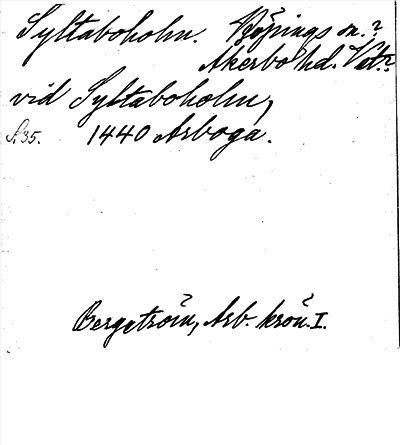 Syltaboholm. Köpings sn.?
Åkerbo hd. Vstm.?
vid Syltaboholm,
S. 35. 1440 Arboga.
Bergström, Arb. krön. I.